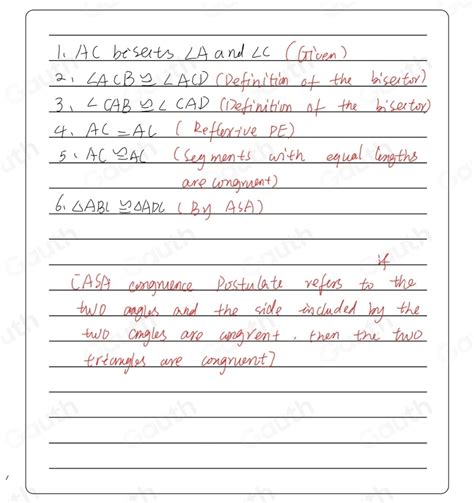 1. AC bisects ∠A and ∠C (Given)
2. ∠ACB ≅ ∠ACD (Definition of the bisector)
3. ∠CAB ≅ ∠CAD (Definition of the bisector)
4. AC = AC (Reflexive PE)
5. AC ≅ AC (Segments with equal lengths
are congruent)
6. △ABC ≅ △ADC (By ASA)
if
[ASA congruence Postulate refers to the
two angles and the side included by the
two angles are congruent. then the two
triangles are congruent]
Gauth